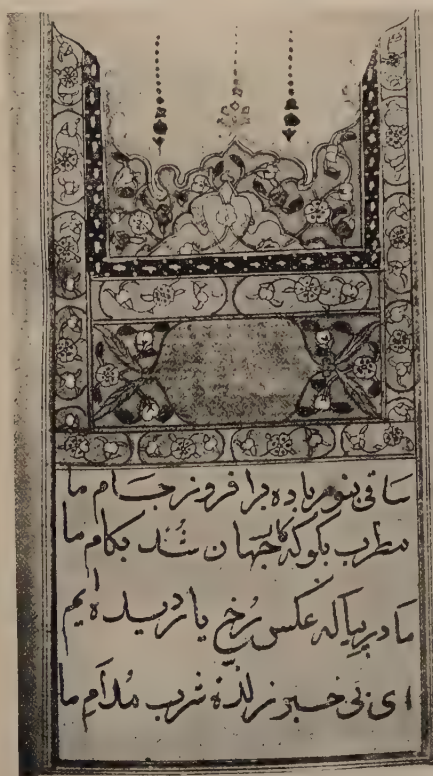 ساقی بنور باده برافروز جام ما
مطرب بکو که کار جهان شد بکام ما
ما در پیاله عکس رخ یار دیده ایم
ای بی خبر ز لذة شرب مدام ما